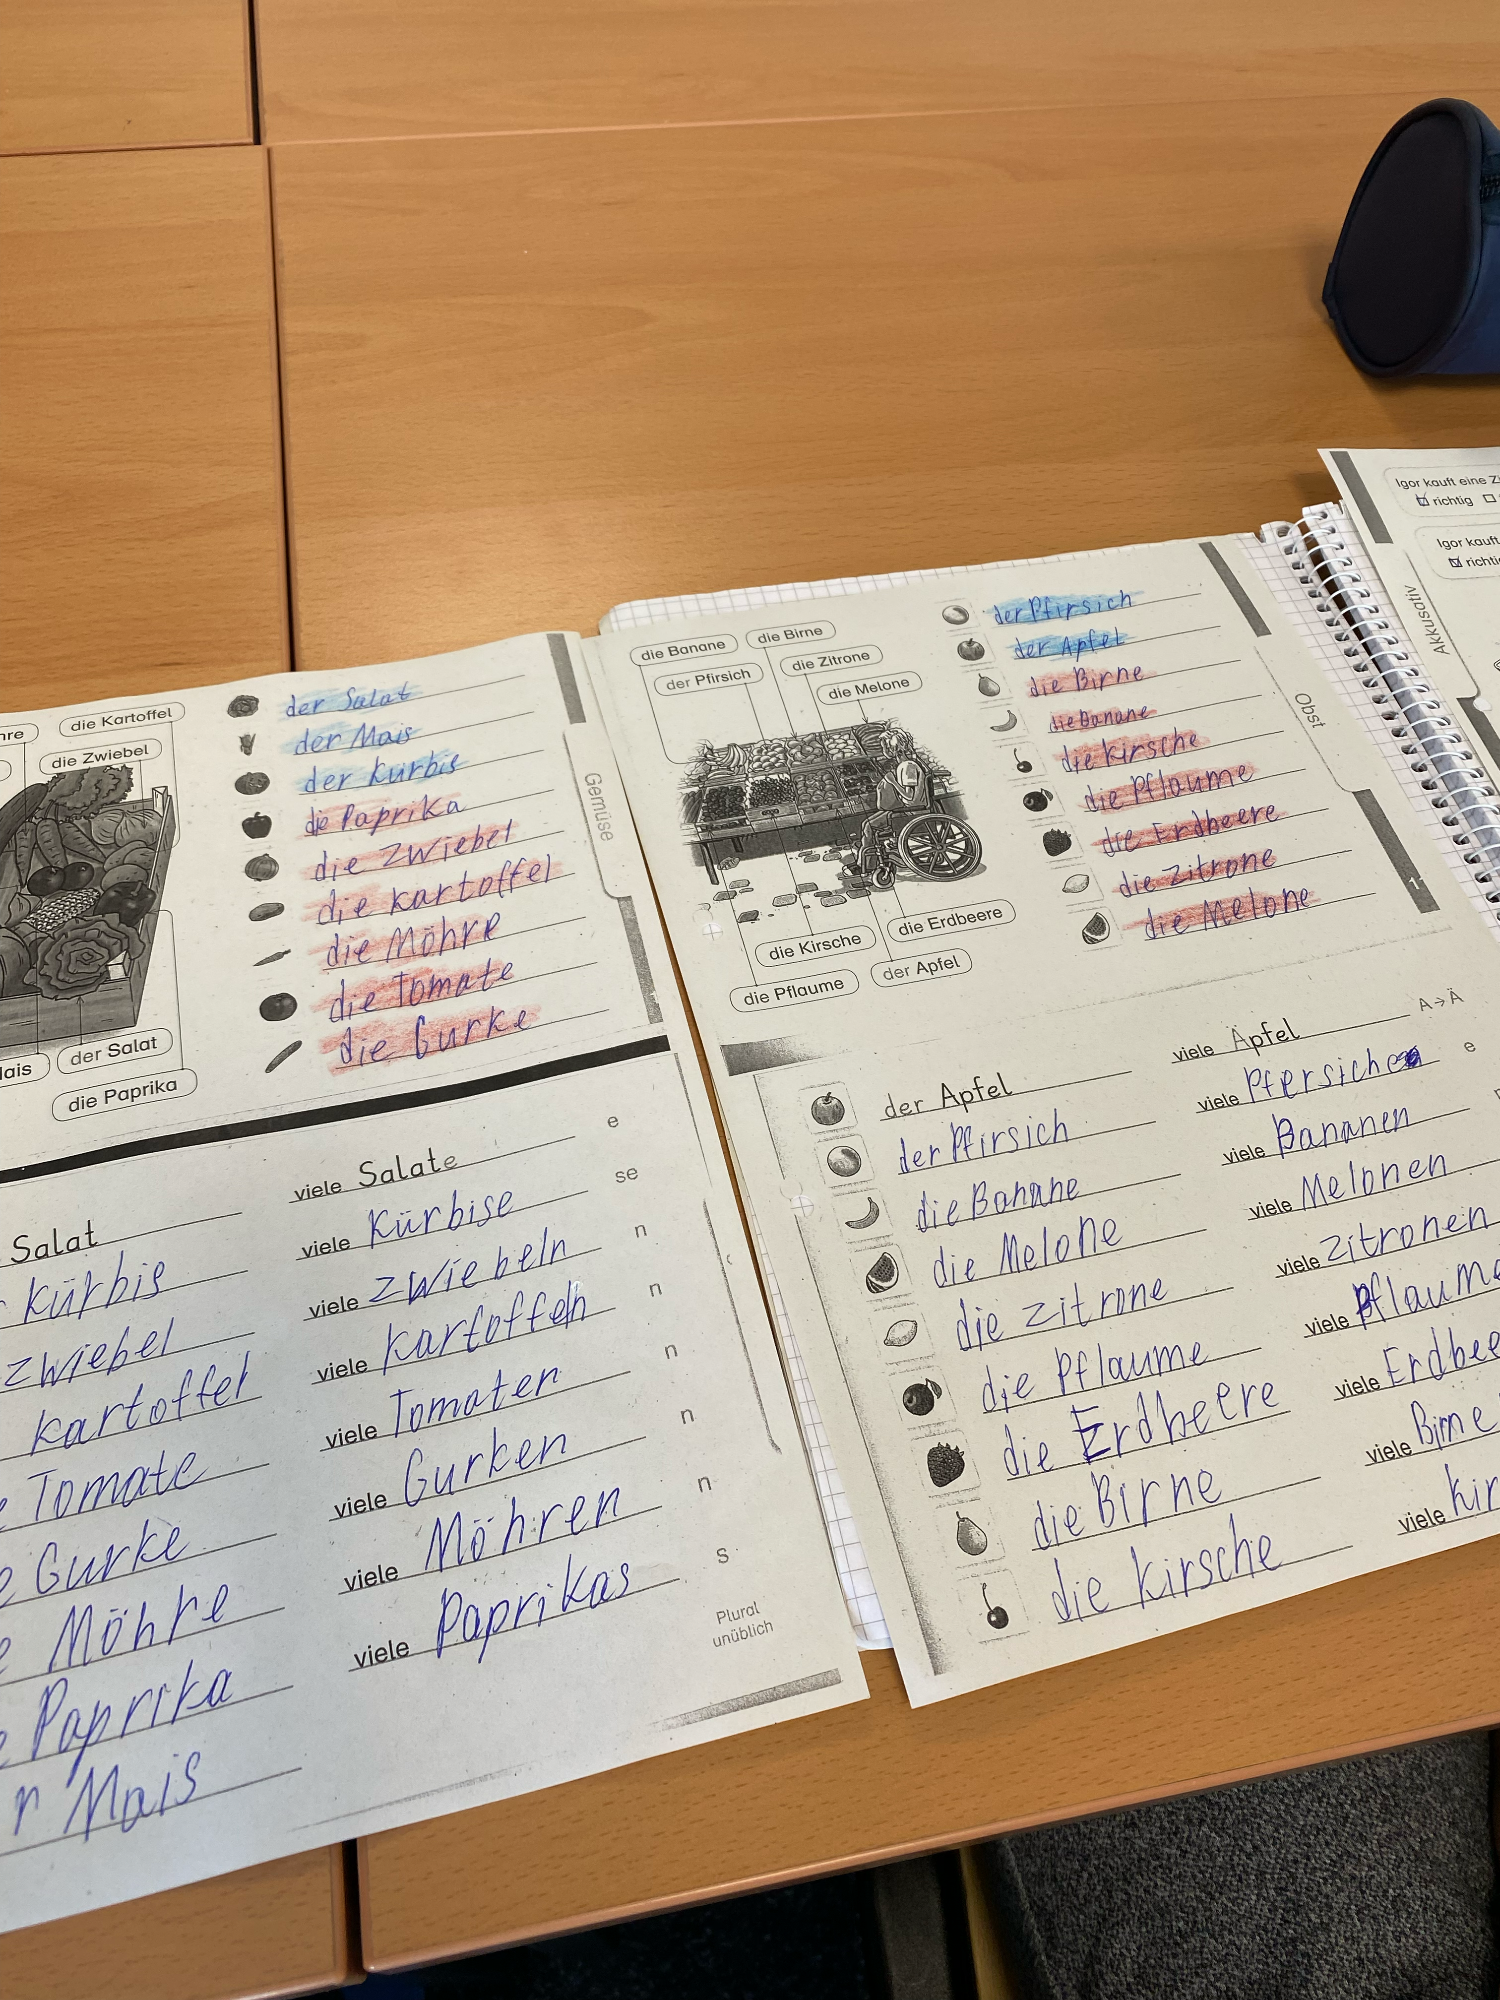 die Kartoffel
die Zwiebel
der Salat
die Paprika
der Salat
der Mais
der Kürbis
die Paprika
die Zwiebel
die Kartoffel
die Möhre
die Tomate
die Gurke
Gemüse
Salat viele Salate e
Kürbis viele Kürbise se
Zwiebel viele Zwiebeln n
Kartoffel viele Kartoffeln n
Tomate viele Tomaten n
Gurke viele Gurken n
Möhre viele Möhren n
Paprika viele Paprikas s
Mais Plural
unüblich
die Banane
die Birne
der Pfirsich
die Zitrone
die Melone
die Kirsche
die Erdbeere
die Pflaume
der Apfel
der Pfirsich
der Apfel
die Birne
die Banane
die Kirsche
die Pflaume
die Erdbeere
die Zitrone
die Melone
Obst
der Apfel viele Äpfel A→Ä
der Pfirsich viele Pfersiche e
die Banane viele Bananen
die Melone viele Melonen
die Zitrone viele Zitronen
die Pflaume viele
die Erdbeere viele
die Birne viele
die Kirsche viele
Igor kauft eine
richtig
Igor kauft
Akkusativ